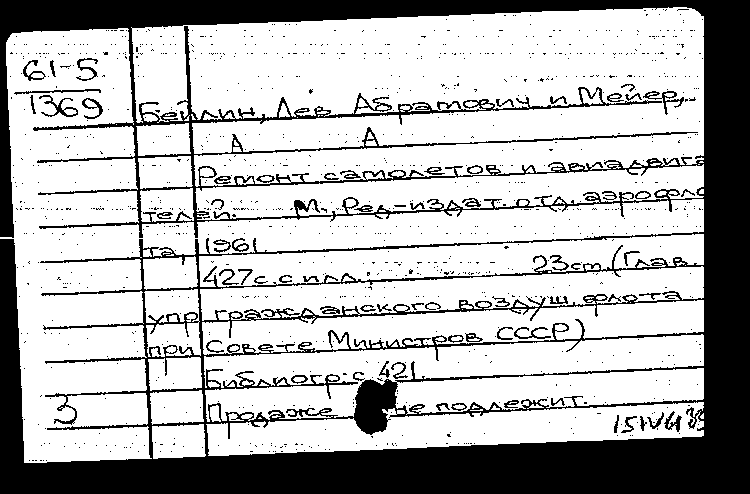 61-5
1369 Бейлин, Лев Абрамович и Мейер,
А А
Ремонт самолетов и авиадвига
телей. М., Ред-издат. отд. аэрофло
та, 1961
427с. с илл.; 23см. (Глав.
упр гражданского воздуш. флота
при Совете Министров СССР)
Библиогр: с 421.
3 Продаже не подлежит.